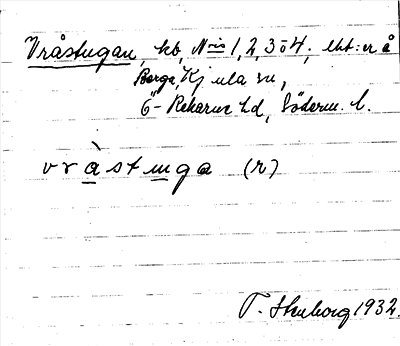 Vråstugan, kb, N–ris 1, 2, 3 o 4, lht: er å
Berga, Kjula sn,
Ö– Rekarne hd, Söderm. l.
vråstuga (r)
T. Stenborg 1932.